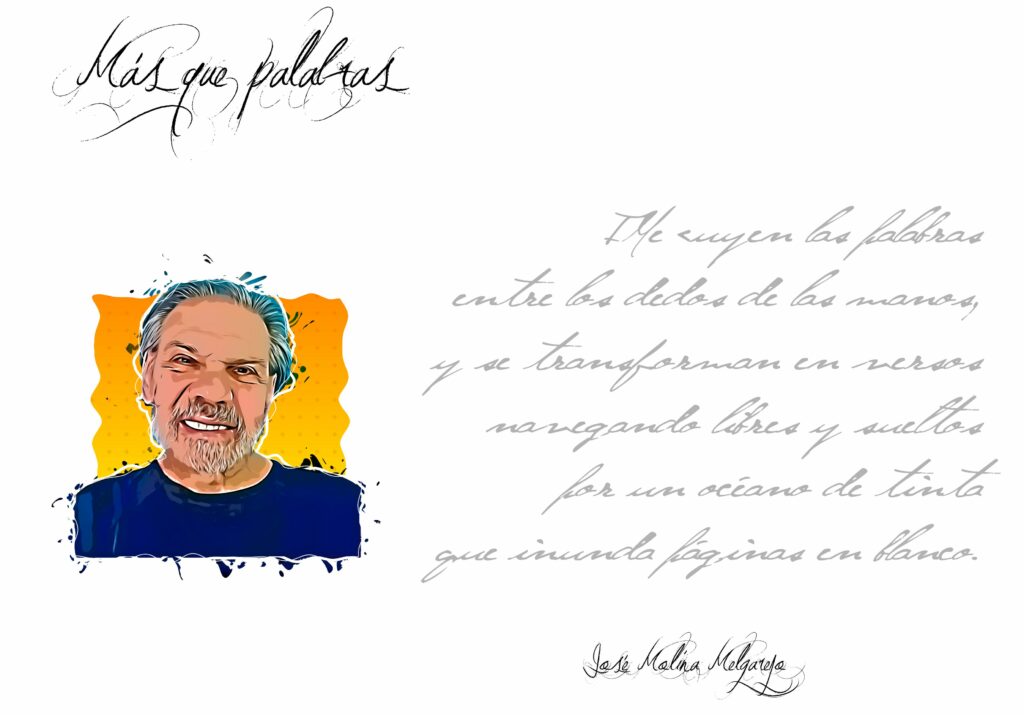 Más que palabras
Me las palabras
entre los dedos de las manos,
y se transforman en versos
navegando libres y sueltos
por un océano de tinta
que inunda páginas en blanco.
José Molina Melgarejo